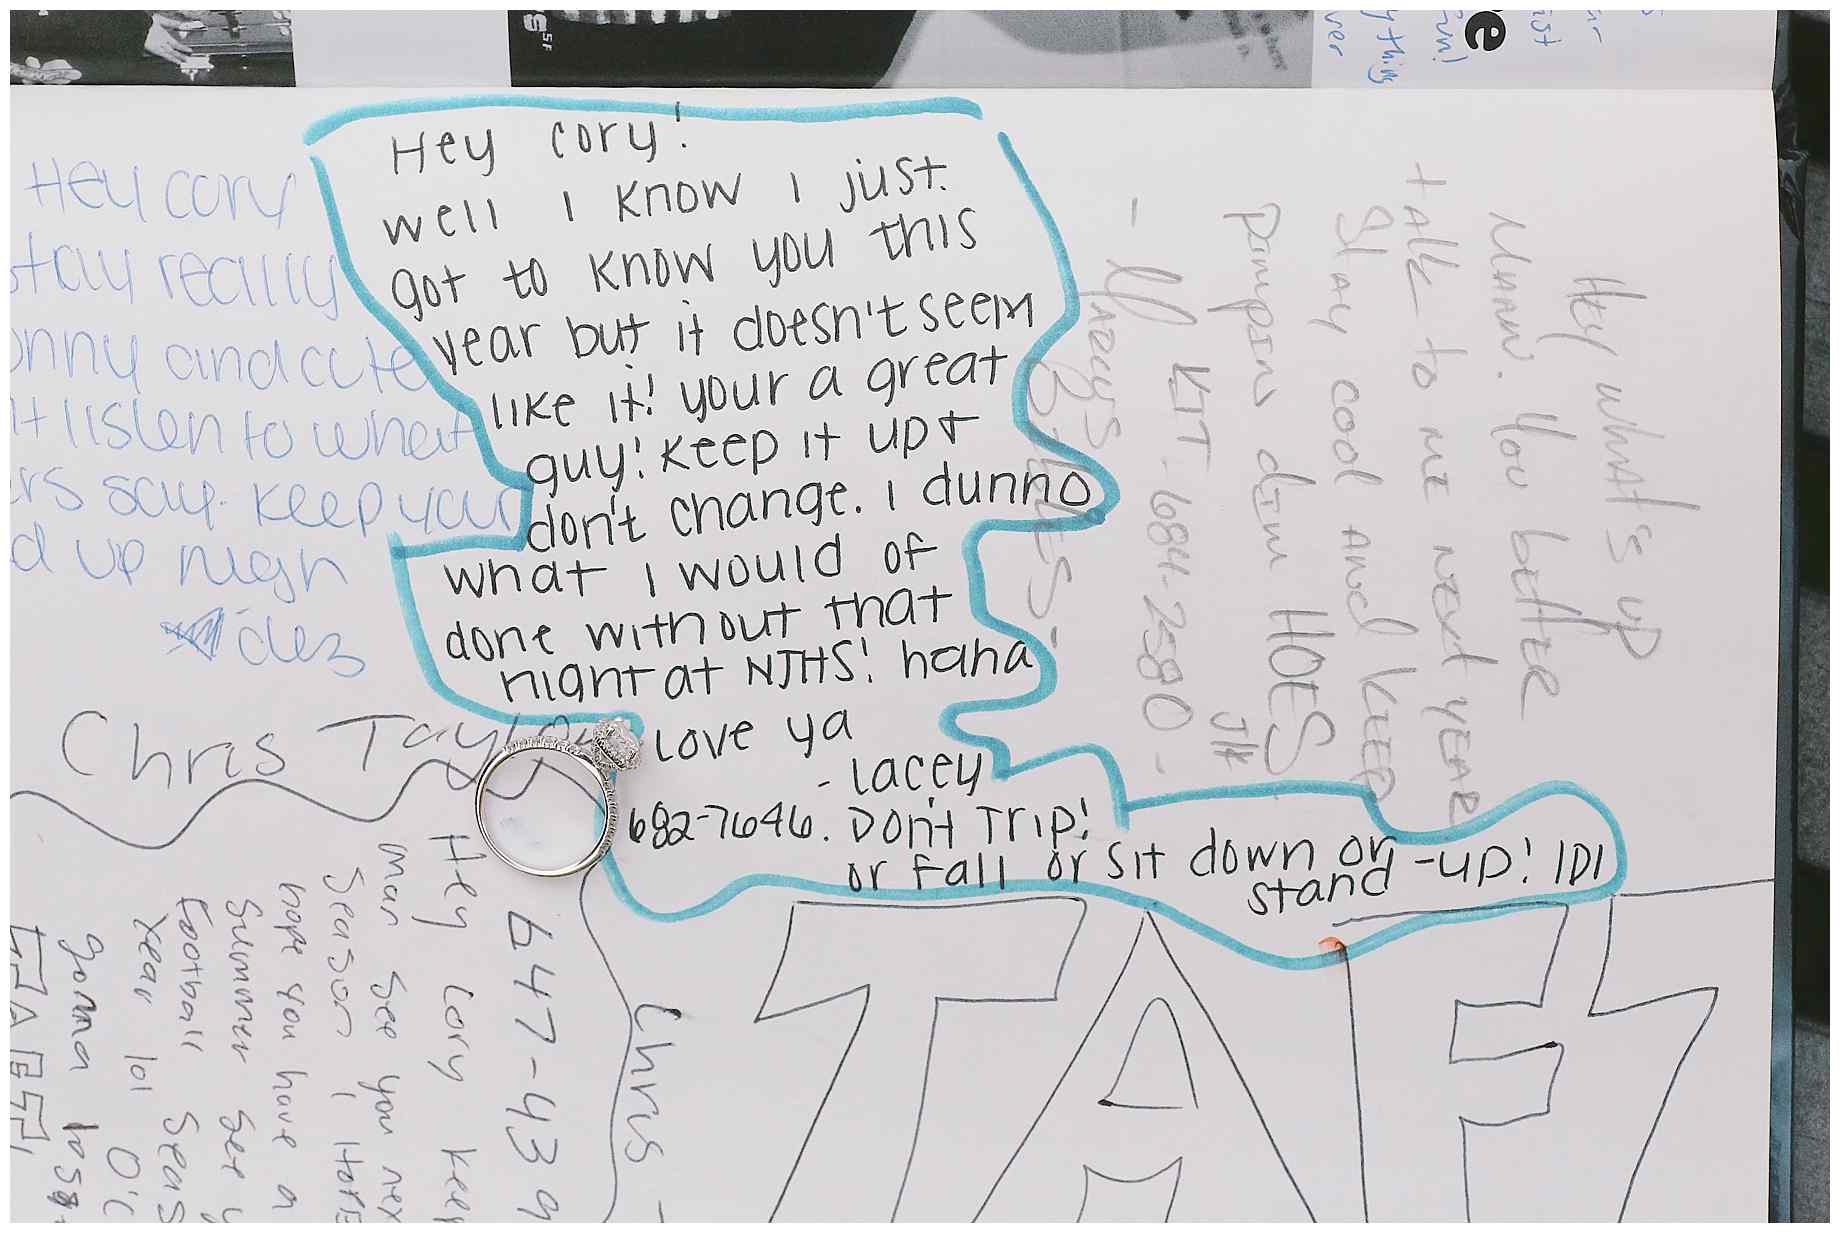 Hey Cory!
well I know I just
got to know you this
year but it doesn't seem
like it! your a great
guy! Keep it up +
don't change. I dunno
what I would of
done without that
night at NJHS! haha
Love ya
- Lacey
682-7646. Don't Trip!
or fall or sit down or
stand -up! lol
Hey cory
stay really
and cute
listen to what
say. keep your
up high
dez
Chris Taylor
Hey what's up
Mann. You better
talk to me next year
Stay cool and keep
pimpin dem HOES
J/K
- KIT - 684-2580 -
647-439
Hey Cory keep
man see you nex
Season I HOPE
hope you have a
Summer see y
football seas
Year lol
gonna lose
Chris -
TAF